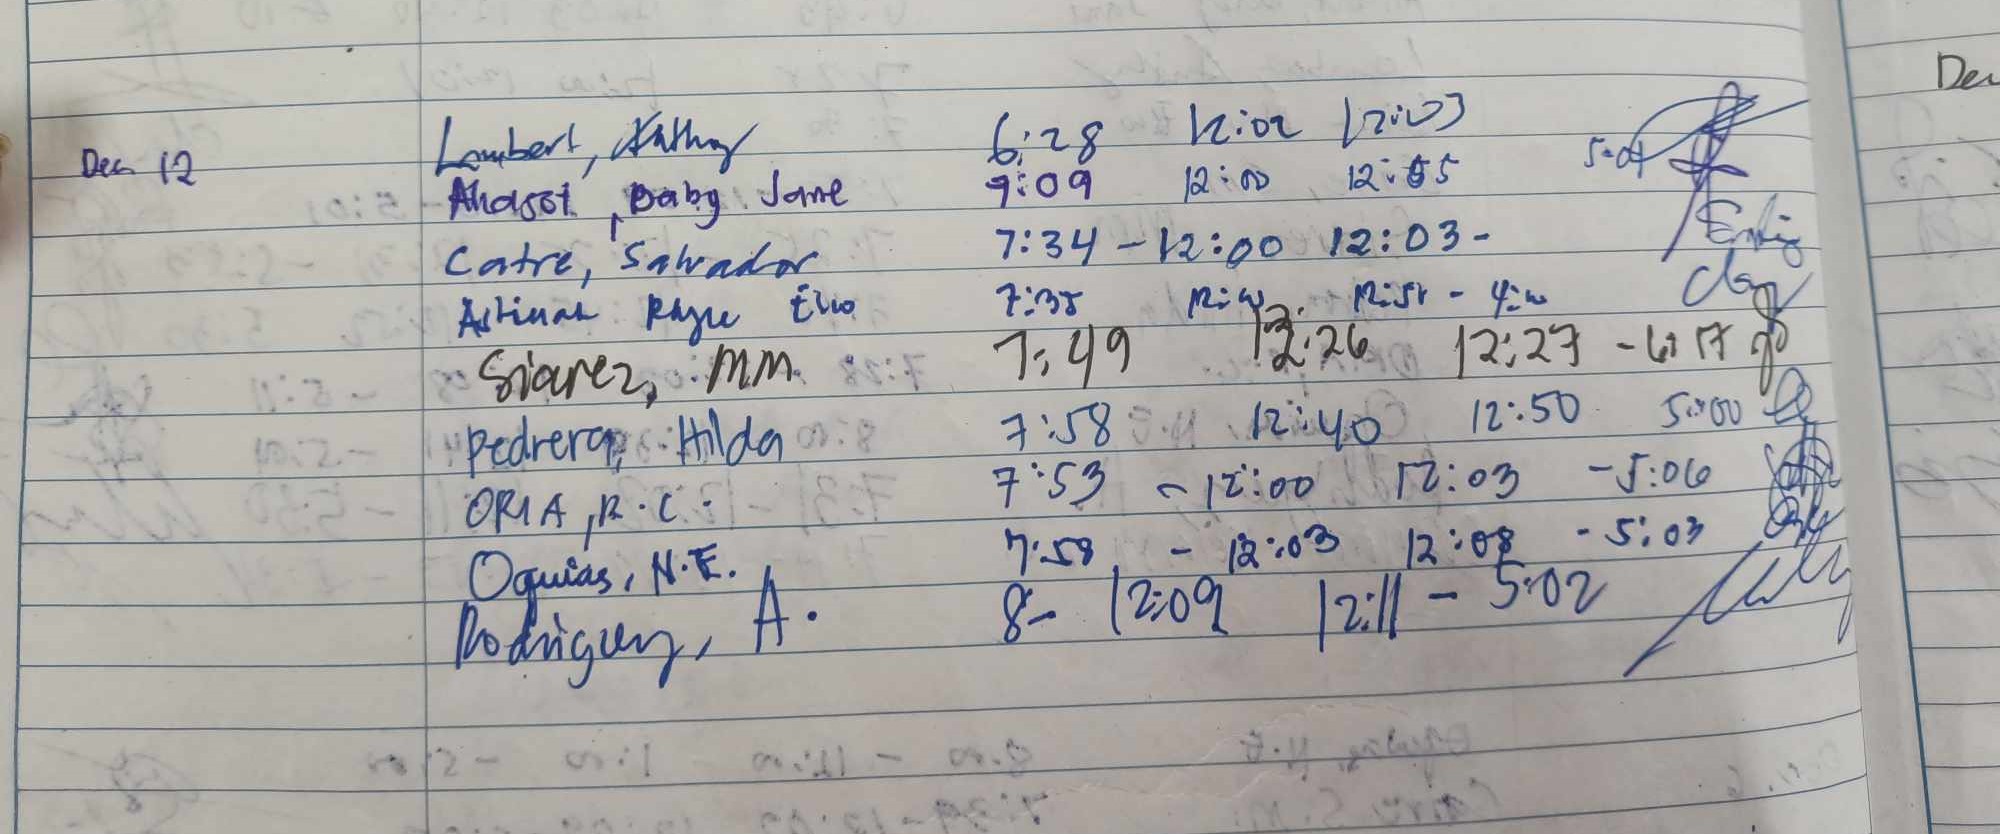 Dec 12 Lambert, Kathy 6:28 12:02 12:03 5:01
Ahasot, Baby Jane 9:09 12:00 12:55
Catre, Salvador 7:34 - 12:00 12:03 -
7:38
Siarez, MM. 7:49 12:26 12:27 - 6:17
Pedrera, Hilda 7:58 12:40 12:50 5:00
ORIA, R.C. 7:53 - 12:00 12:03 - 5:06
Oquias, N.E. 7:58 - 12:03 12:08 - 5:03
Rodriguez, A. 8- 12:09 12:11 - 5:02